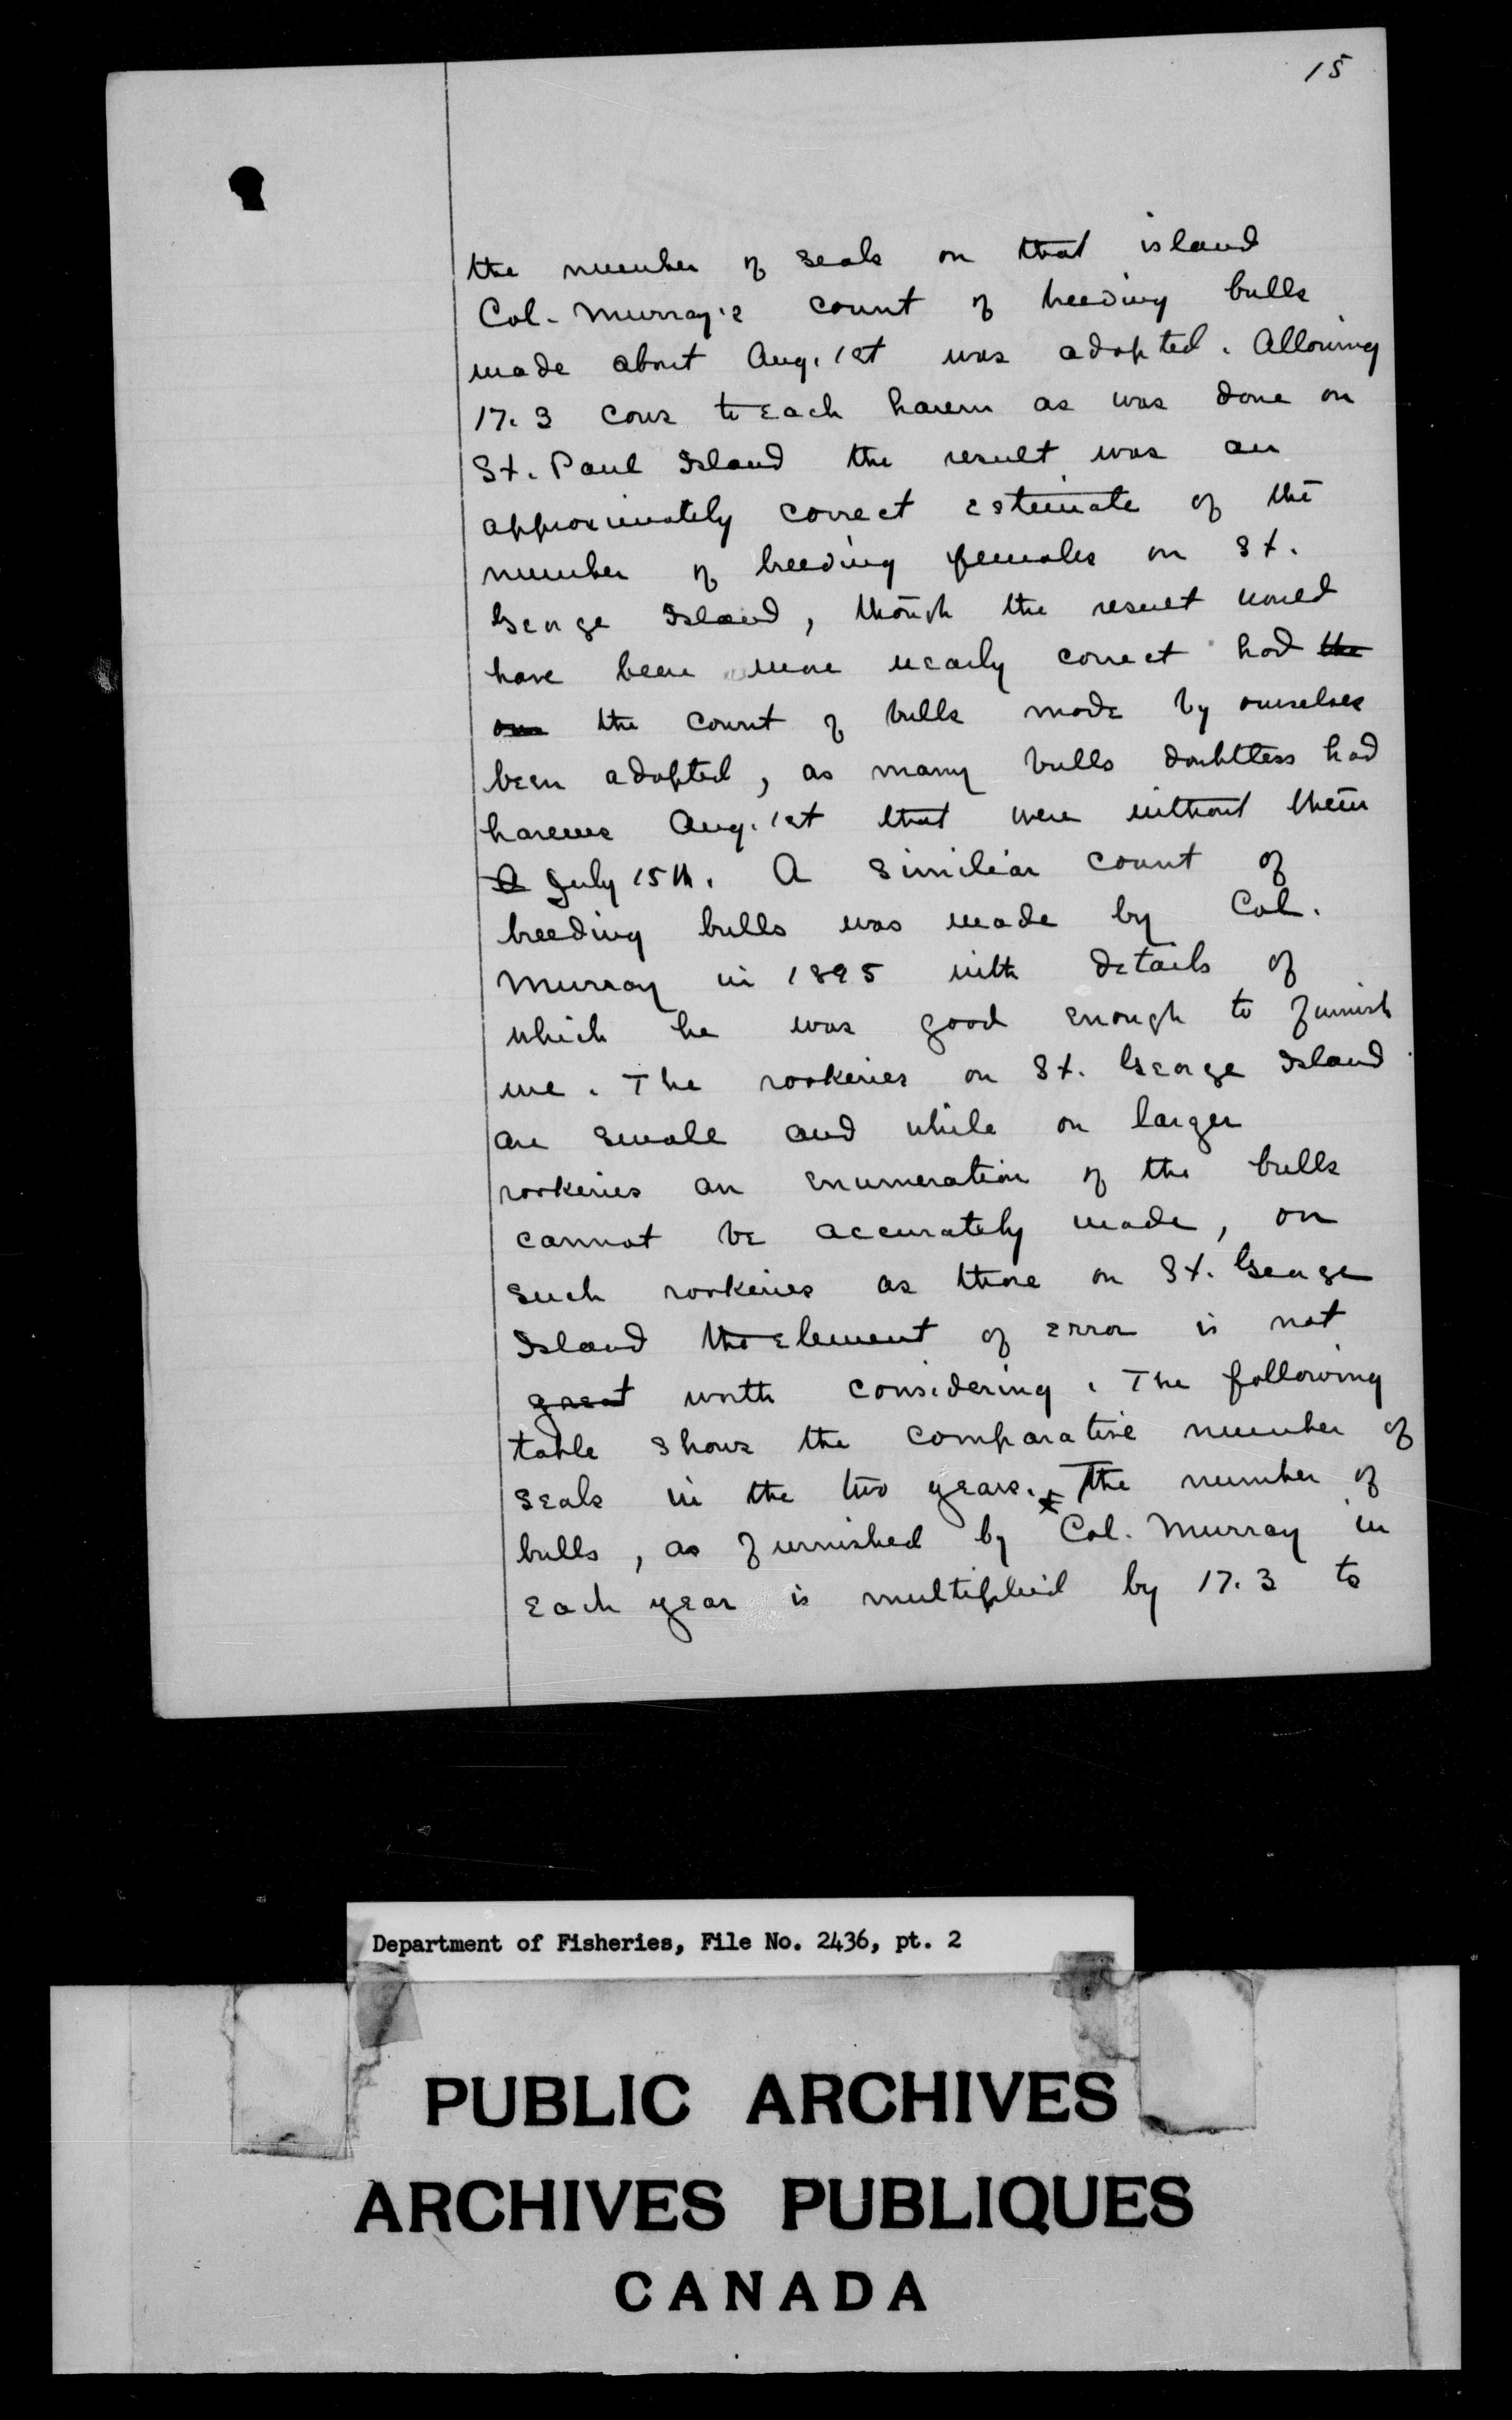 15
the number of seals on that island
Col. Murray's count of breeding bulls
made about Aug. 1st was adopted. Allowing
17.3 cows to each harem as was done on
St. Paul Island the result was an
approximately correct estimate of the
number of breeding females on St.
George Island, though the result would
have been more nearly correct had the
our the count of bulls made by ourselves
been adopted, as many bulls doubtless had
harems Aug. 1st that were without them
A July 15th. A similiar count of
breeding bulls was made by Col.
Murray in 1895 with details of
which he was good enough to furnish
me. The rookeries on St. George Island
are small and while on larger
rookeries an enumeration of the bulls
cannot be accurately made, on
such rookeries as those on St. George
Island the element of error is not
great worth considering. The following
table shows the comparative number of
seals in the two years. The number of
bulls, as furnished by Col. Murray in
each year is multiplied by 17.3 to
Department of Fisheries, File No. 2436, pt. 2
PUBLIC ARCHIVES
ARCHIVES PUBLIQUES
CANADA